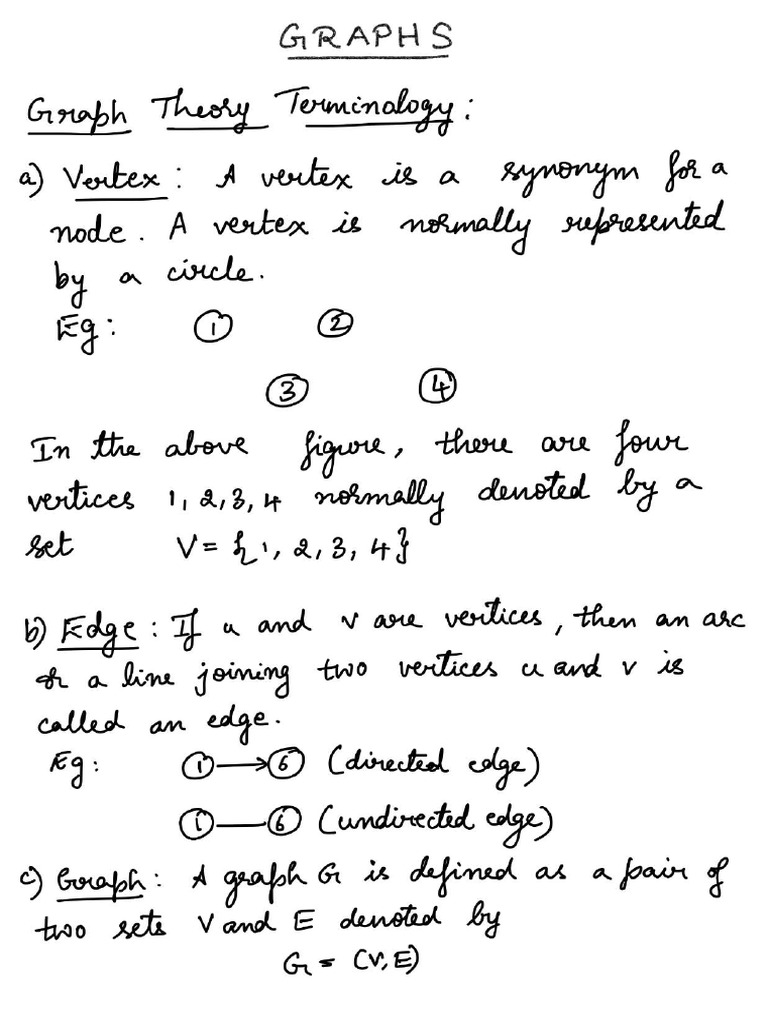 GRAPHS
Graph Theory Terminology:
a) Vertex: A vertex is a synonym for a
node. A vertex is normally represented
by a circle.
Eg: 1 2
3 4
In the above figure, there are four
vertices 1, 2, 3, 4 normally denoted by a
set V = {1, 2, 3, 4}
b) Edge: If u and v are vertices, then an arc
or a line joining two vertices u and v is
called an edge.
Eg: 1 → 6 (directed edge)
1 — 6 (undirected edge)
c) Graph: A graph G is defined as a pair of
two sets V and E denoted by
G = (V, E)